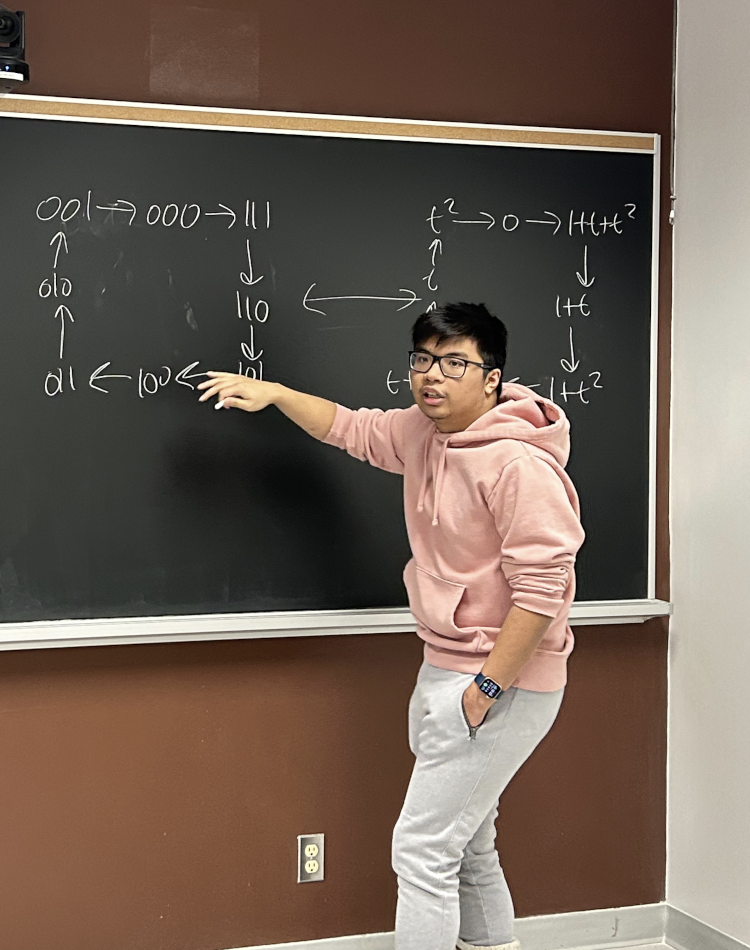 001 → 000 → 111
↑ ↓
010 110
↑ ↓
011 ← 100 ← 101
↔
t² → 0 → 1+t+t²
↑ ↓
t 1+t
↓
t+ ← 1+t²